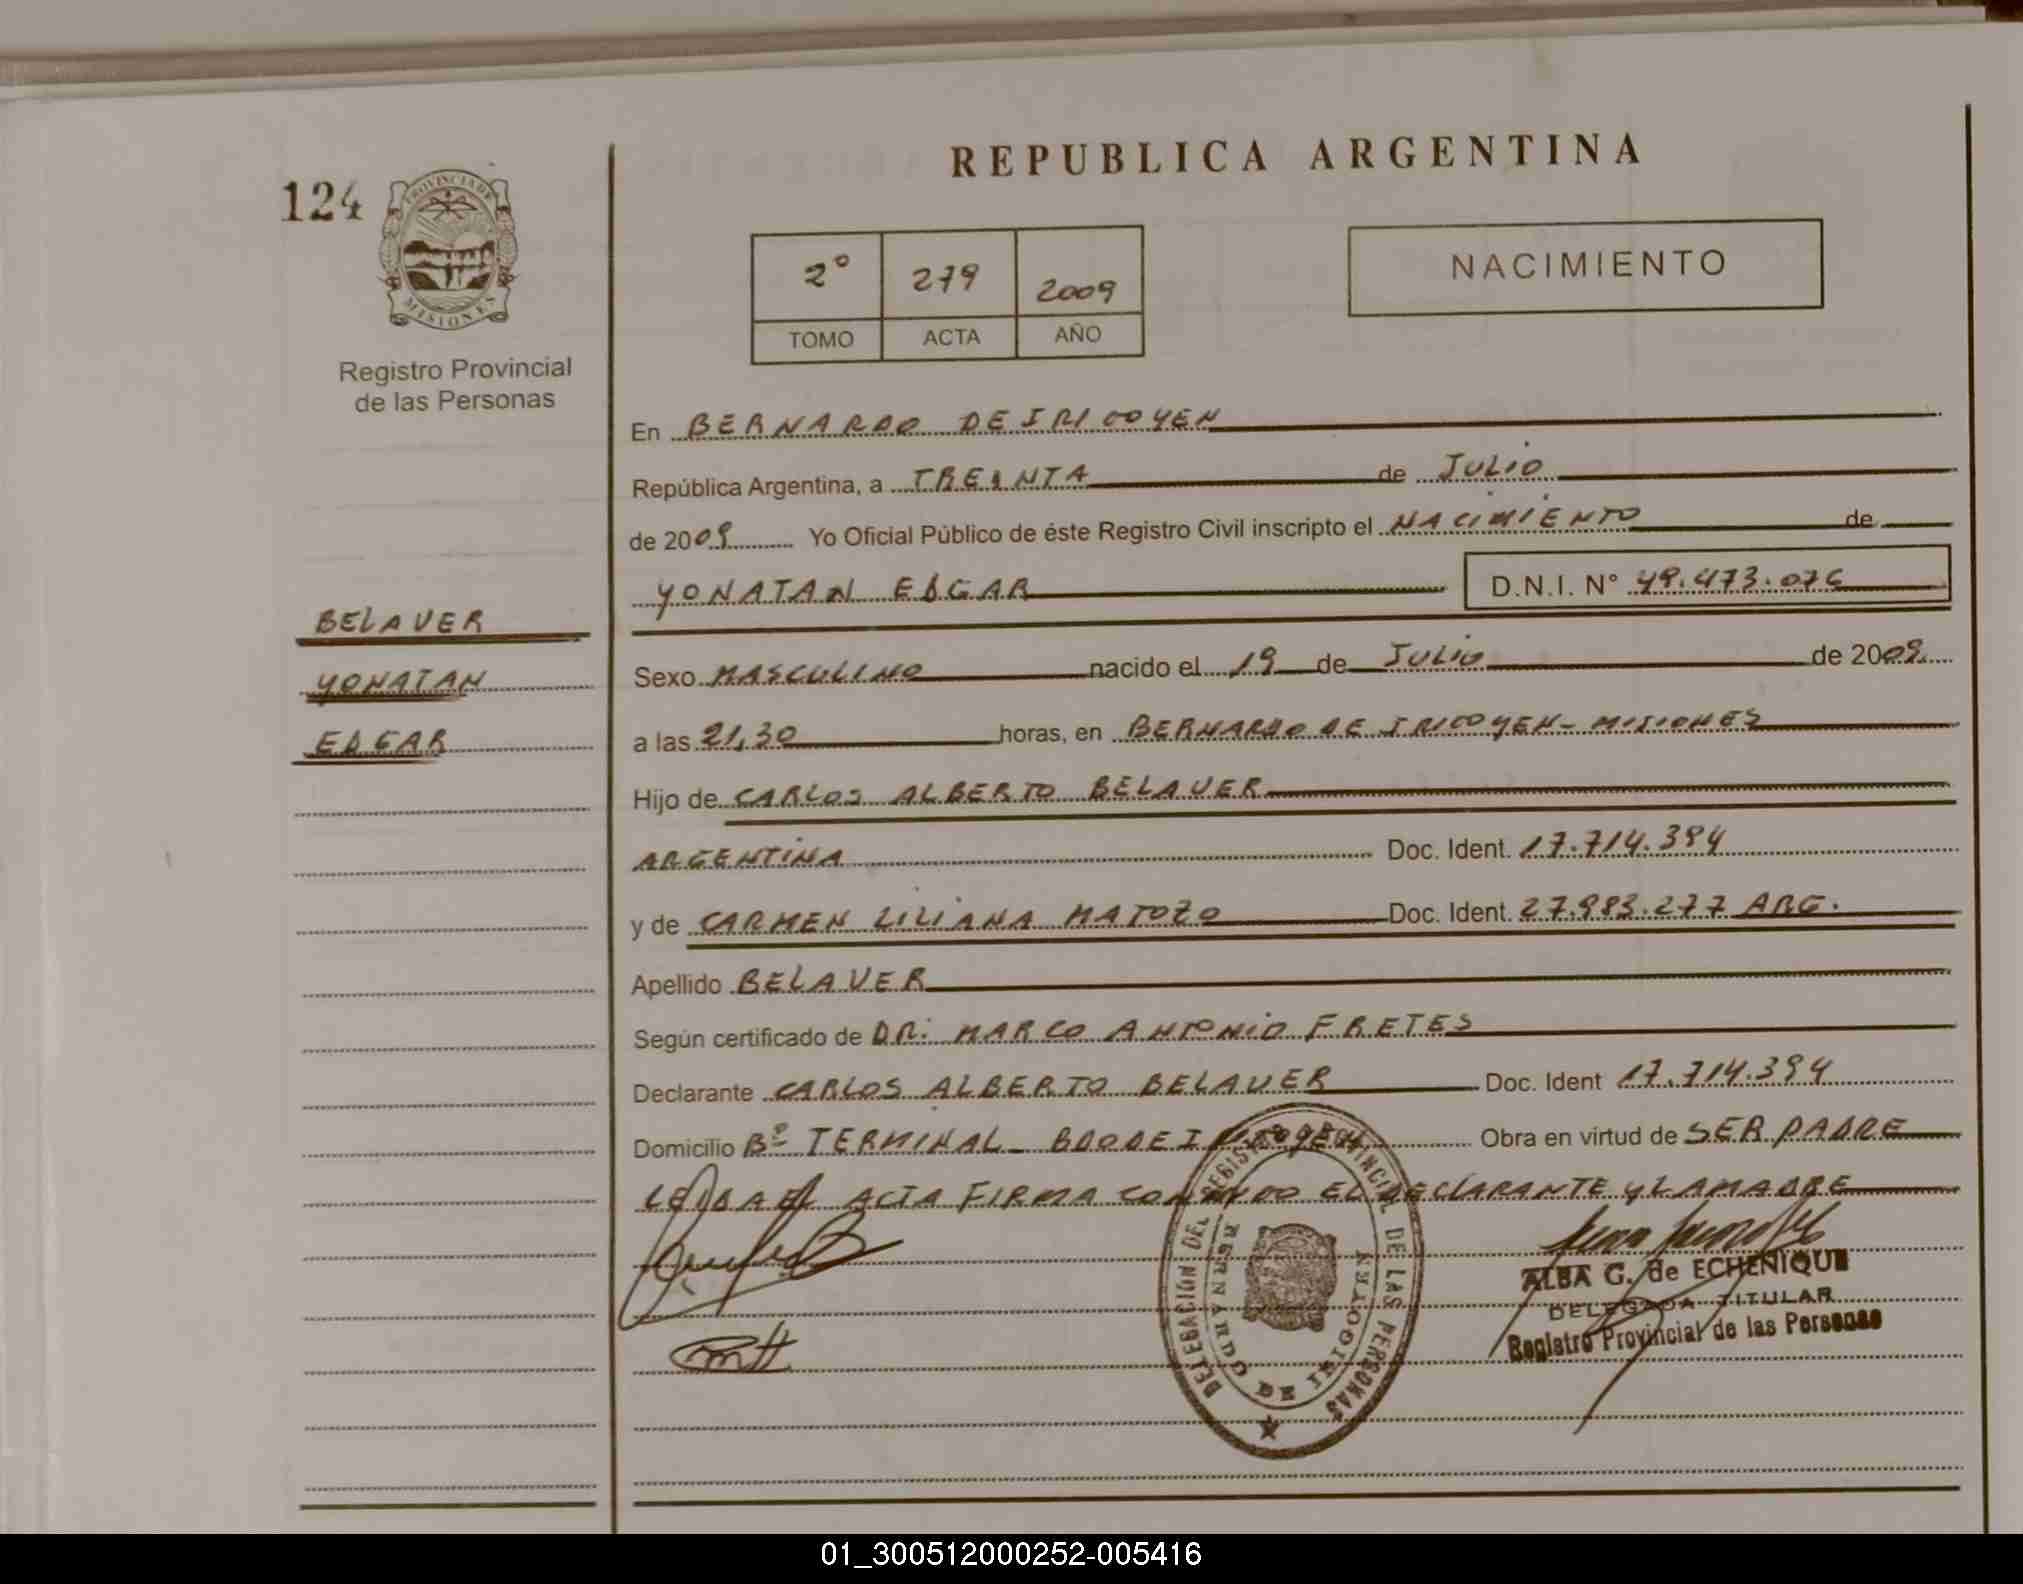 REPUBLICA ARGENTINA
124
PROVINCIA DE
MISIONES
2° 279 2009
TOMO ACTA AÑO
NACIMIENTO
Registro Provincial
de las Personas
En BERNARDO DE IRIGOYEN
República Argentina, a TREINTA de JULIO
de 2009 Yo Oficial Público de éste Registro Civil inscripto el NACIMIENTO de
YONATAN EDGAR D.N.I. N° 49.473.076
BELAVER
YONATAN
EDGAR
Sexo MASCULINO nacido el 19 de JULIO de 2009
a las 21,30 horas, en BERNARDO DE IRIGOYEN - MISIONES
Hijo de CARLOS ALBERTO BELAVER
ARGENTINA Doc. Ident. 17.714.394
y de CARMEN LILIANA MATOZO Doc. Ident. 27.983.277 ARG.
Apellido BELAVER
Según certificado de DR: MARCO ANTONIO FRETES
Declarante CARLOS ALBERTO BELAVER Doc. Ident 17.714.394
Domicilio Bº TERMINAL - BDO DE IRIGOYEN Obra en virtud de SER PADRE
LEIDA EL ACTA FIRMA CONMIGO EL DECLARANTE Y LA MADRE
DELEGACIÓN DEL REGISTRO PROVINCIAL DE LAS PERSONAS
BERNARDO DE IRIGOYEN
ALBA G. de ECHENIQUE
DELEGADA TITULAR
Registro Provincial de las Personas
01_300512000252-005416